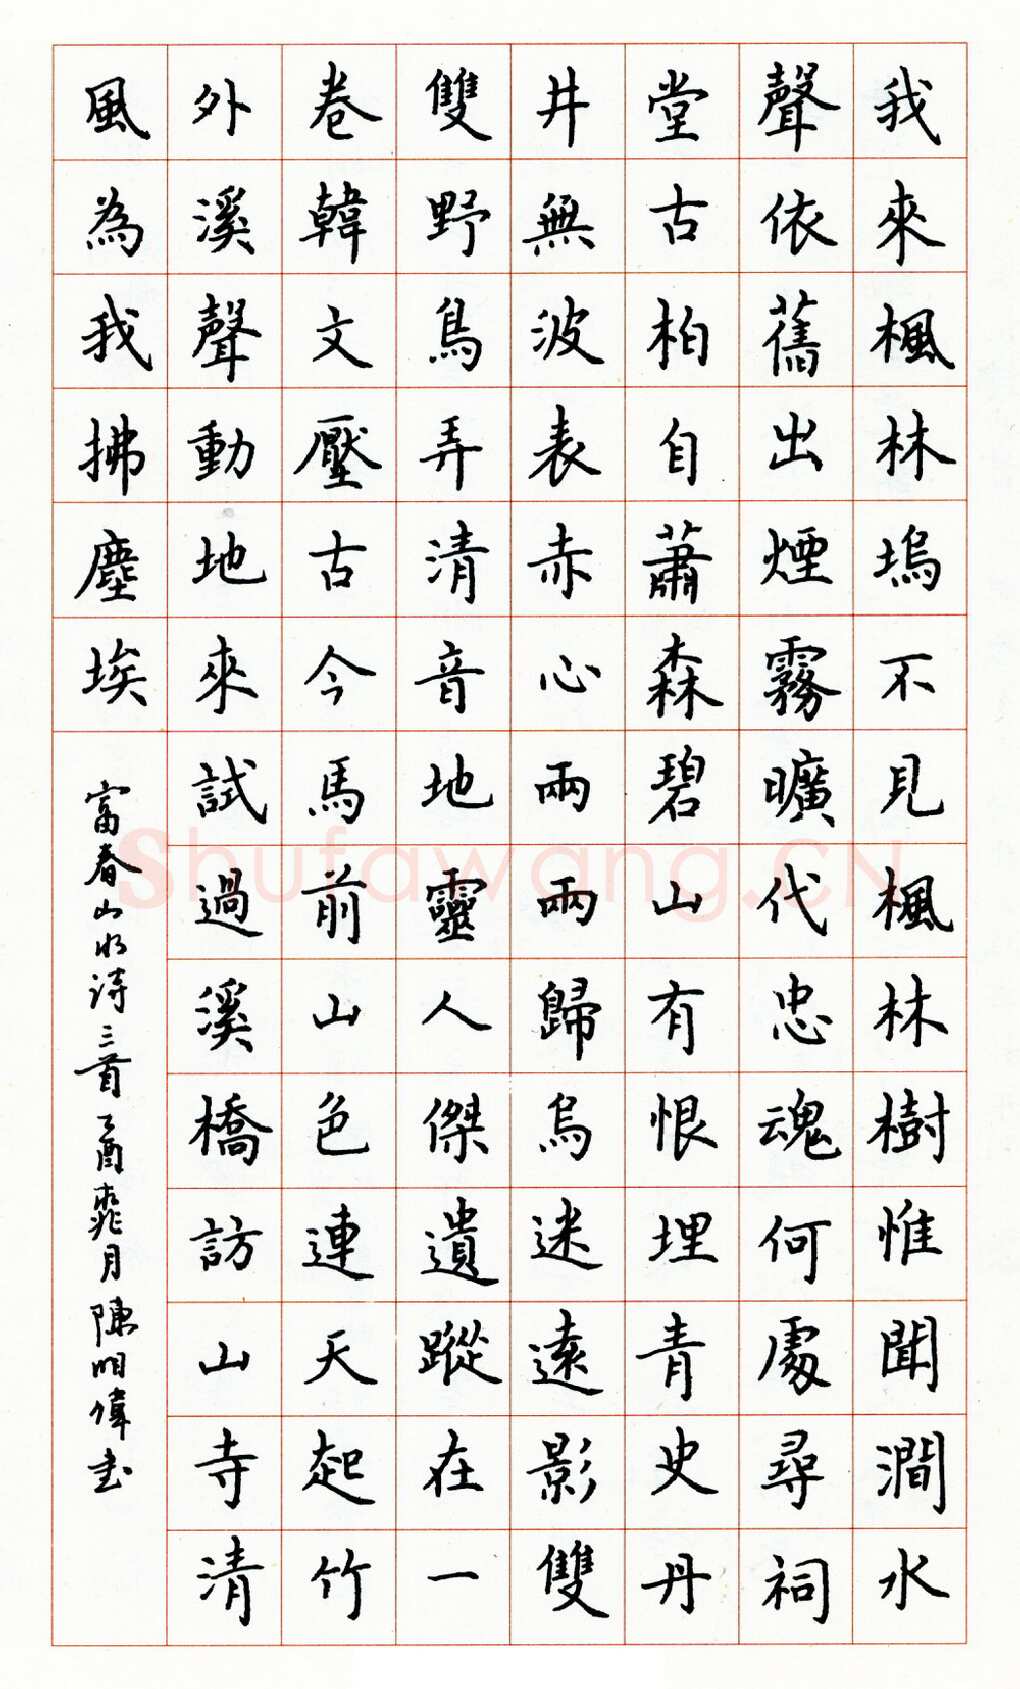 我來楓林塢不見楓林樹惟聞澗水
聲依舊出煙霧曠代忠魂何處尋祠
堂古柏自蕭森碧山有恨埋青史丹
井無波表赤心兩兩歸烏迷遠影雙
雙野鳥弄清音地靈人傑遺蹤在一
卷韓文壓古今馬前山色連天起竹
外溪聲動地來試過溪橋訪山寺清
風為我拂塵埃
富春山水诗三首乙酉桃月陳明偉书
Shufawang.CN